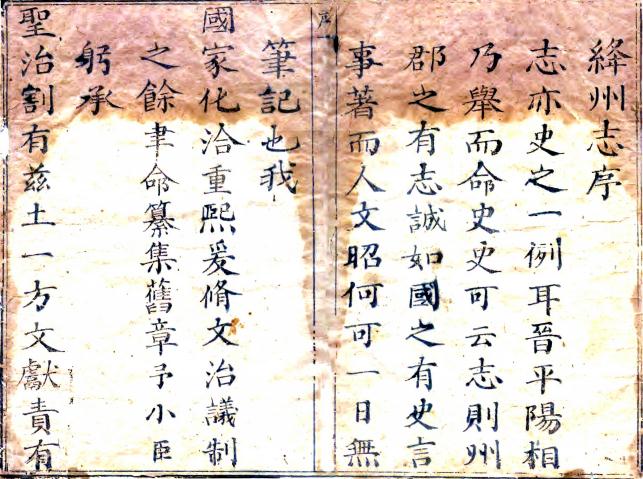 絳州志序
志亦史之一例耳晉平陽相
乃舉而命史史可云志則州
郡之有志誠如國之有史言
事著而人文昭何可一日無
筆記也我
國家化洽重熙爰脩文治議制
之餘聿命纂集舊章予小臣
躬承
聖治割有茲土一方文獻責有